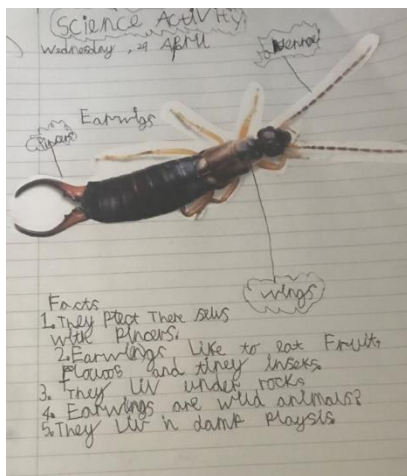 Science Activity
Wednesday, 29 April
antennae
Earwigs
Pincers
wings
Facts
1. They Ptect There selfs
with Pincers.
2. Earwings Like to eat Fruit,
Flowos and tiney inseks.
3. They Liv under rocks
4. Earwings are wild animals?
5. They Liv in damp Playsis